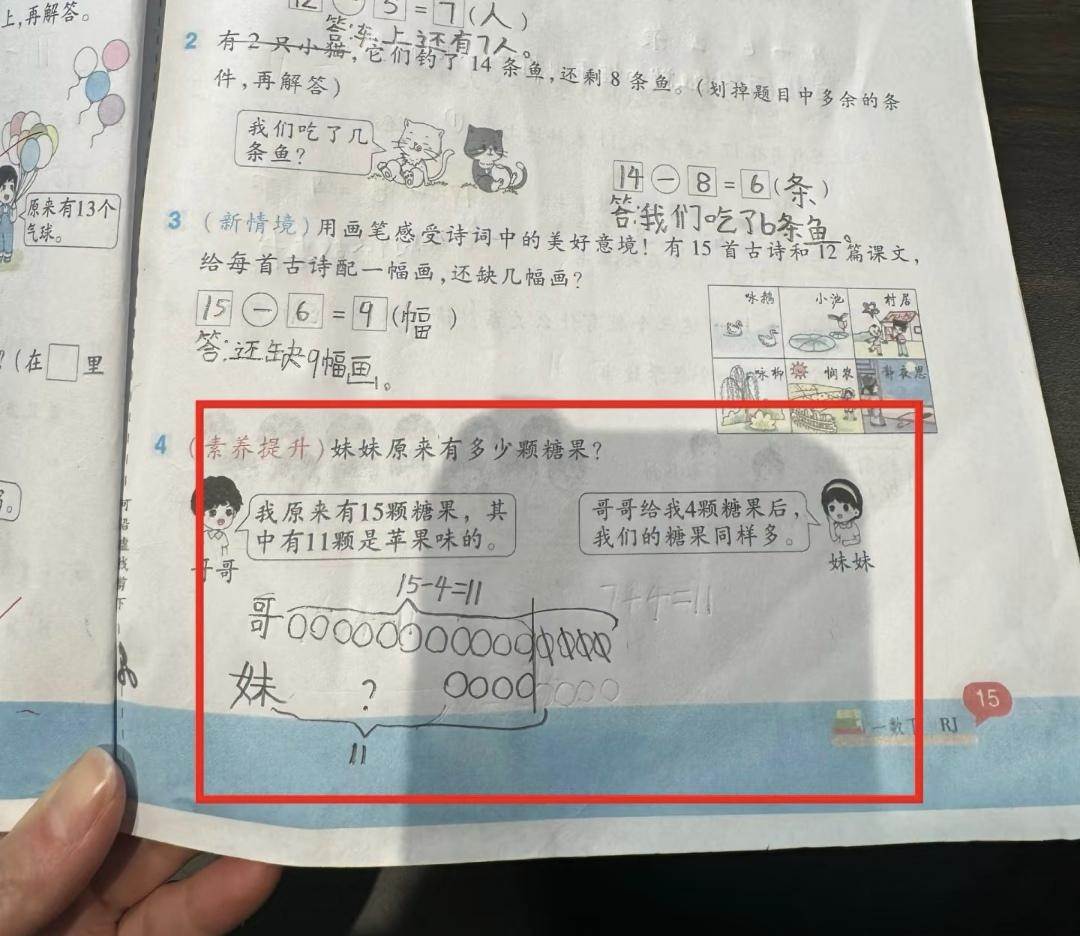 上,再解答。
12 - 5 = 7 (人)
答:车上还有7人。
2 有2只小猫,它们钓了14条鱼,还剩8条鱼。(划掉题目中多余的条
件,再解答)
我们吃了几
条鱼?
14 - 8 = 6 (条)
答:我们吃了6条鱼。
原来有13个
气球。
3 (新情境)用画笔感受诗词中的美好意境!有15首古诗和12篇课文,
给每首古诗配一幅画,还缺几幅画?
15 - 6 = 9 (幅)
答:还缺9幅画。
咏鹅 小池 村居
咏柳 悯农 静夜思
?(在 里
4 (素养提升)妹妹原来有多少颗糖果?
我原来有15颗糖果,其
中有11颗是苹果味的。
哥哥
哥哥给我4颗糖果后,
我们的糖果同样多。
妹妹
15-4=11
7+4=11
哥
妹 ?
11
15
一数下 RJ